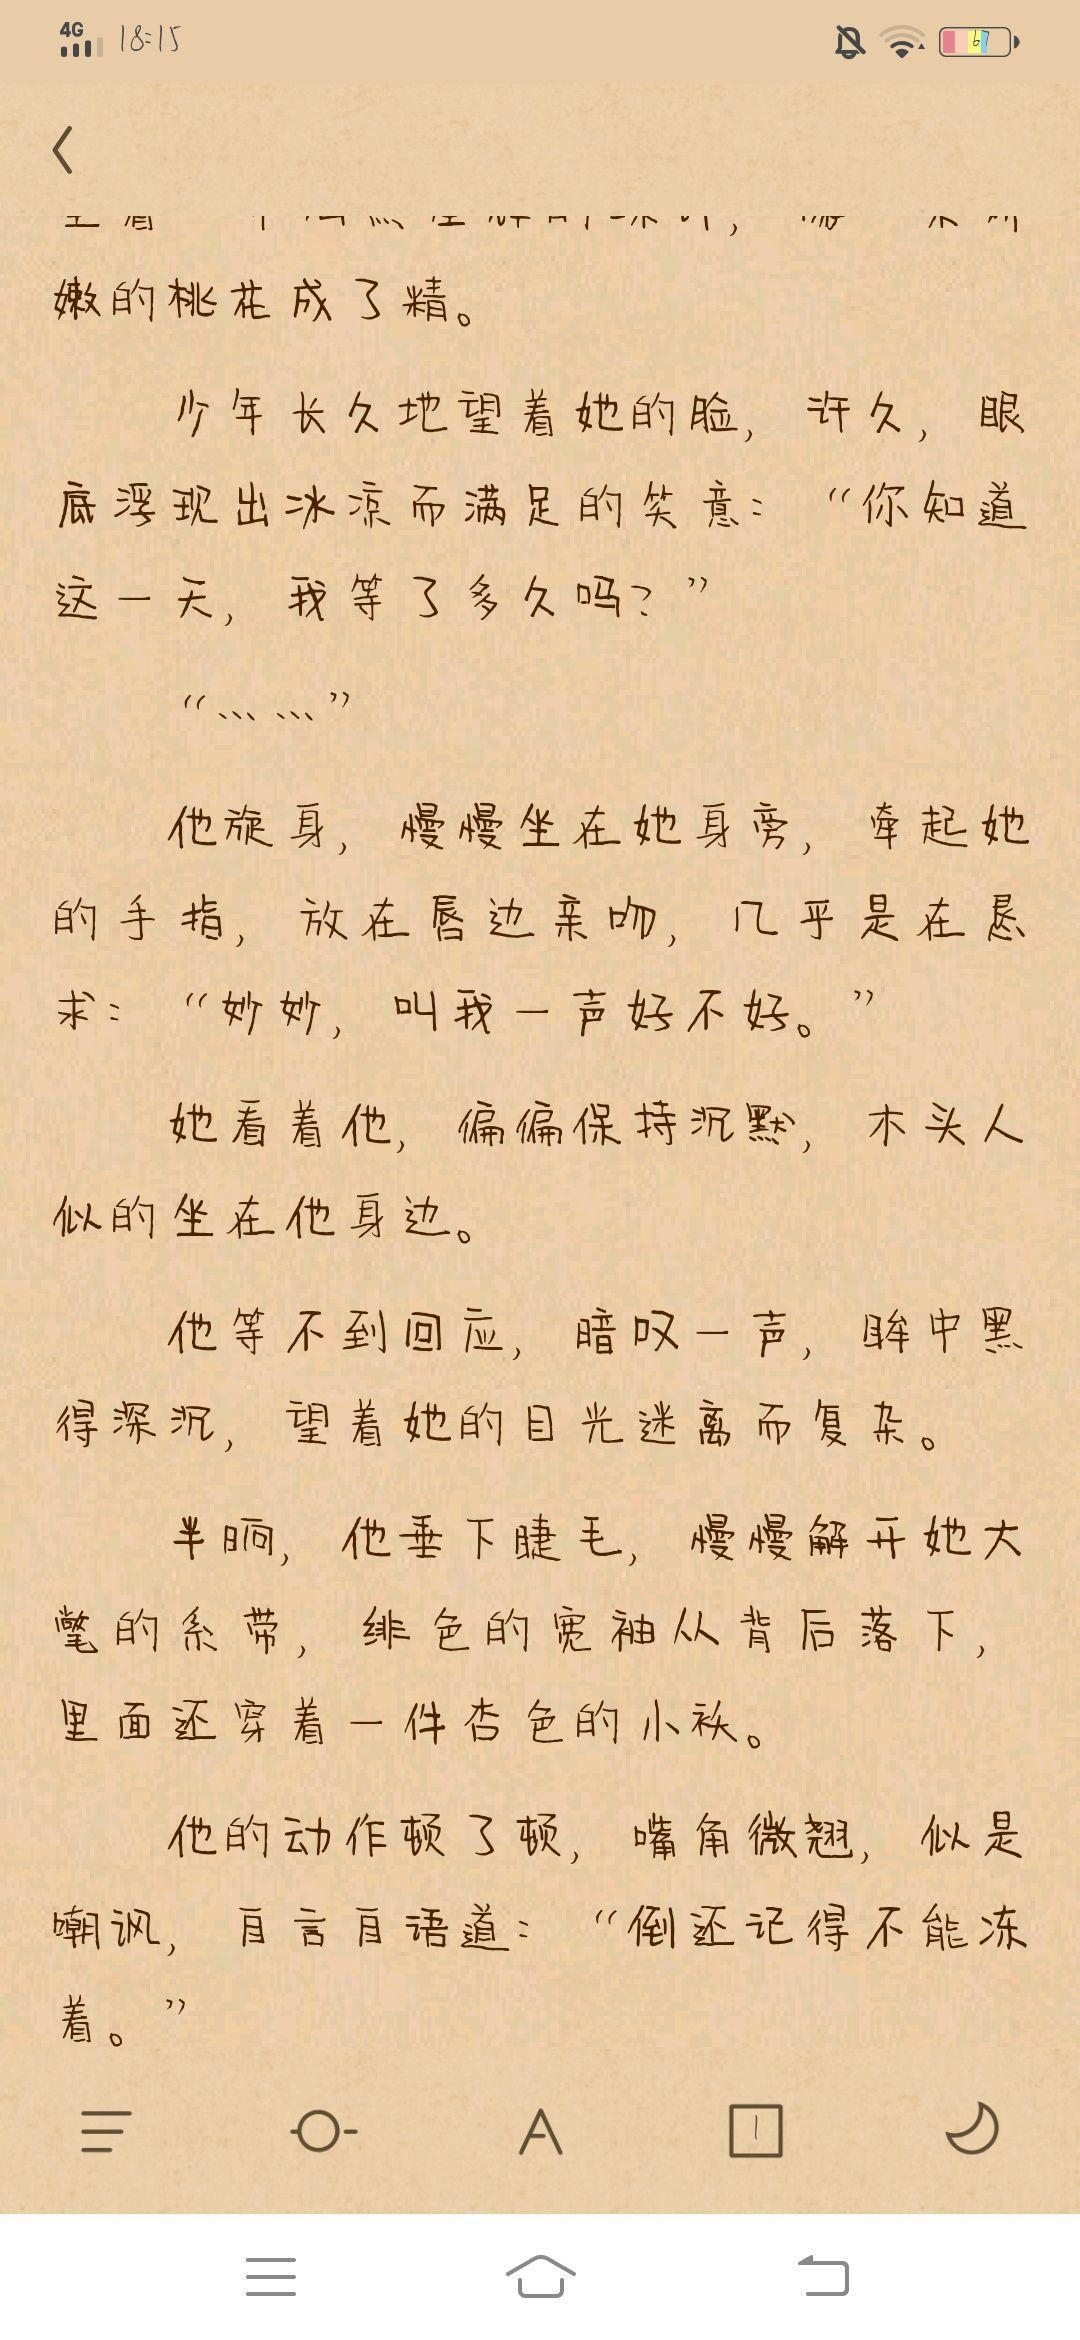 4G 18:15 67
嫩的桃花成了精。
少年长久地望着她的脸，许久，眼
底浮现出冰凉而满足的笑意：“你知道
这一天，我等了多久吗？”
“……”
他旋身，慢慢坐在她身旁，牵起她
的手指，放在唇边亲吻，几乎是在恳
求：“妙妙，叫我一声好不好。”
她看着他，偏偏保持沉默，木头人
似的坐在他身边。
他等不到回应，暗叹一声，眸中黑
得深沉，望着她的目光迷离而复杂。
半晌，他垂下睫毛，慢慢解开她大
氅的系带，绯色的宽袖从背后落下，
里面还穿着一件杏色的小袄。
他的动作顿了顿，嘴角微翘，似是
嘲讽，自言自语道：“倒还记得不能冻
着。”
A 1